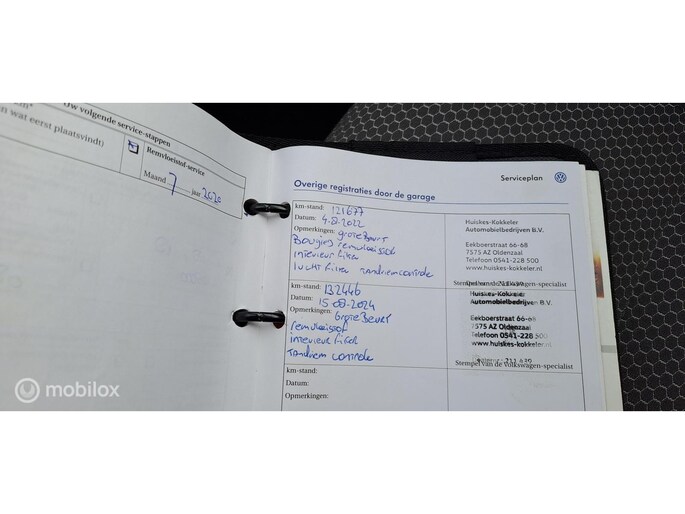 Uw volgende service-stappen
n wat eerst plaatsvindt)
Remvloeistof-service
Maand 7 jaar 2020
Serviceplan
Overige registraties door de garage
km-stand: 121677
Datum: 4-8-2022
Opmerkingen: grote Beurt
Bougies remvloeistof
interieur filter
lucht filter Tandriem controle
Huiskes-Kokkeler
Automobielbedrijven B.V.
Eekboerstraat 66-68
7575 AZ Oldenzaal
Telefoon 0541-228 500
www.huiskes-kokkeler.nl
Stempel van de Volkswagen-specialist
km-stand: 132446
Datum: 15-08-2024
Opmerkingen: Grote Beurt
remvloeistof
interieur filter
Tandriem controle
Huiskes-Kokkeler
Automobielbedrijven B.V.
Eekboerstraat 66-68
7575 AZ Oldenzaal
Telefoon 0541-228 500
www.huiskes-kokkeler.nl
Stempel van de Volkswagen-specialist
km-stand:
Datum:
Opmerkingen:
mobilox